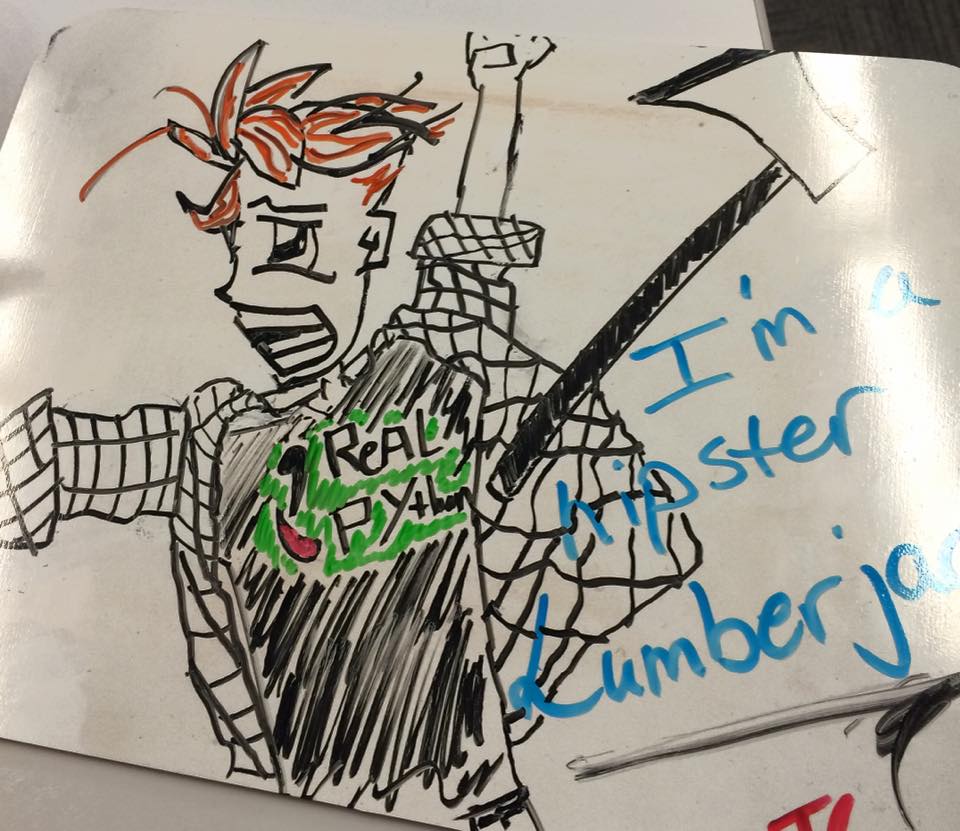 ReAL
PYthon
I'm a
hipster
Lumberjac